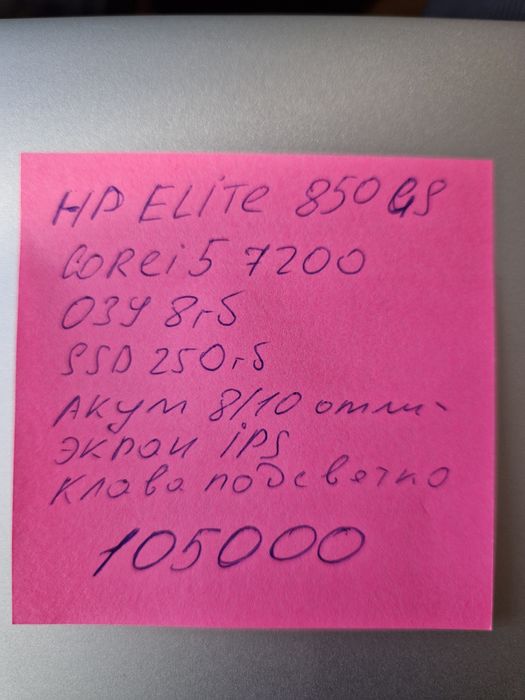 HP ELiTe 850 G8
COREi5 7200
ОЗУ 8гб
SSD 250гб
Акум 8/10 отли-
экран iPS
клава подсветка
105000